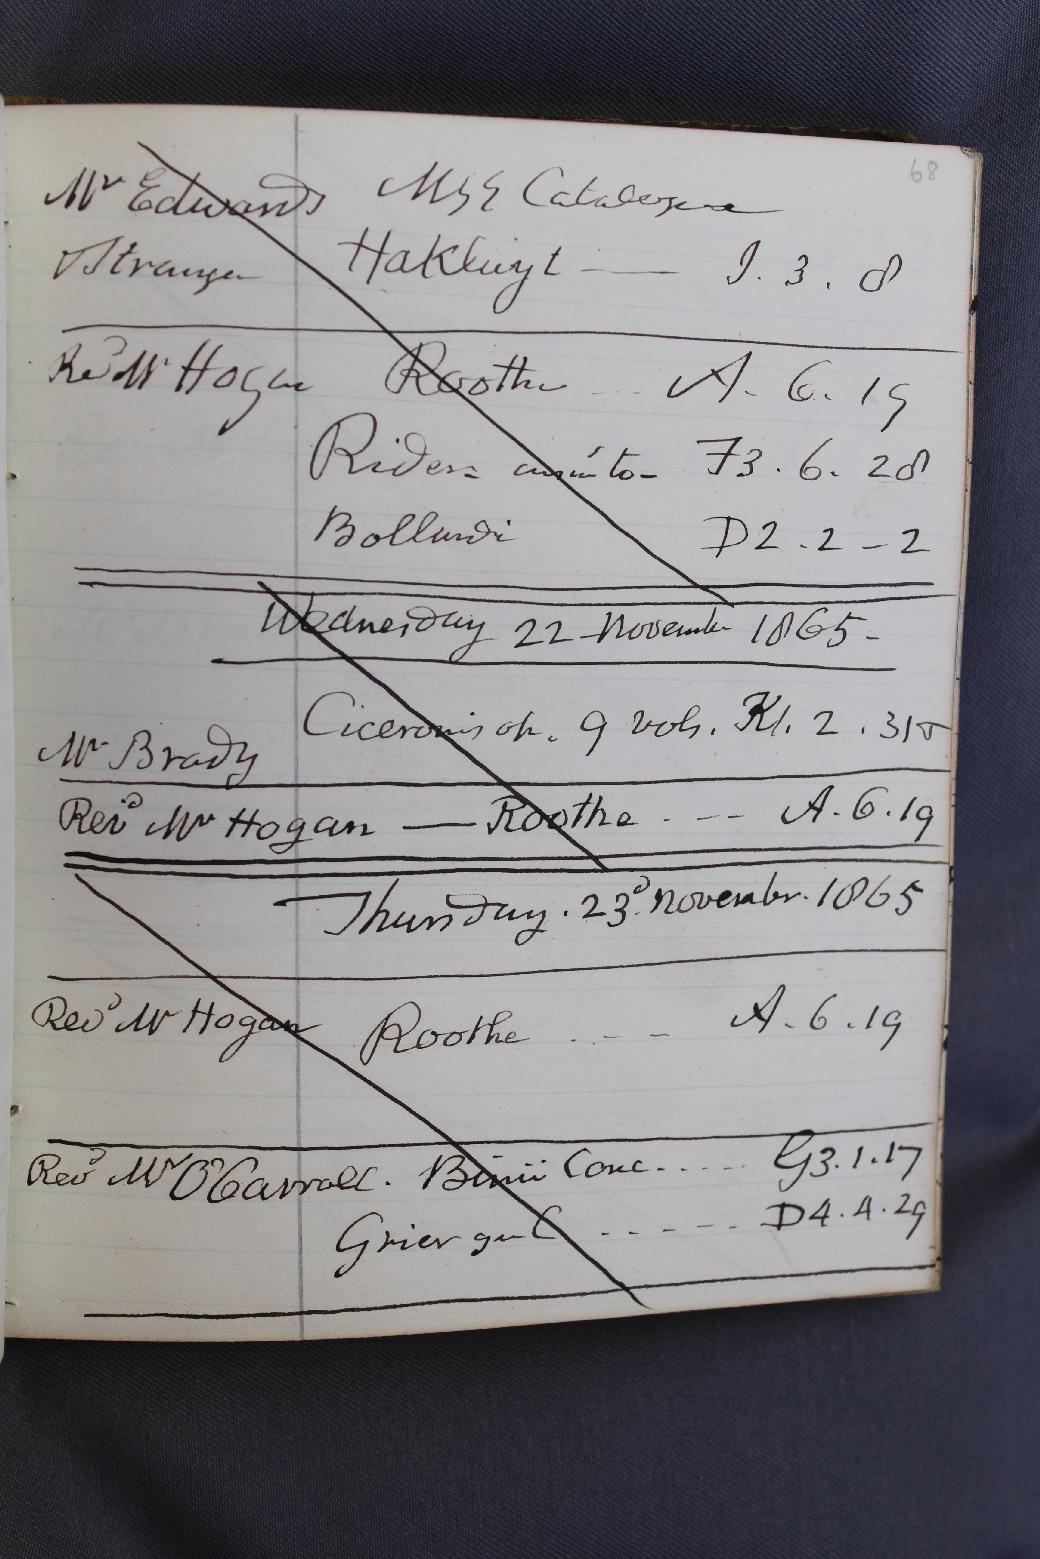 68
Mr Edwards MSS Catalogue
Stranger Hakluyt — I. 3. 8
Revd Mr Hogan Roothe - - - A. 6. 19
Riders F3. 6. 28
D2. 2 - 2
Wednesday 22 November 1865 -
Ciceronis op. 9 vols. Kl. 2. 31
Mr Brady
Revd Mr Hogan — Roothe - - - A. 6. 19
Thursday. 23d November. 1865
Revd Mr Hogan Roothe - - - A. 6. 19
Revd Mr O'Carroll. Binii Conc. . . . . G3. 1. 17
Grier - - - - - D4. 4. 29